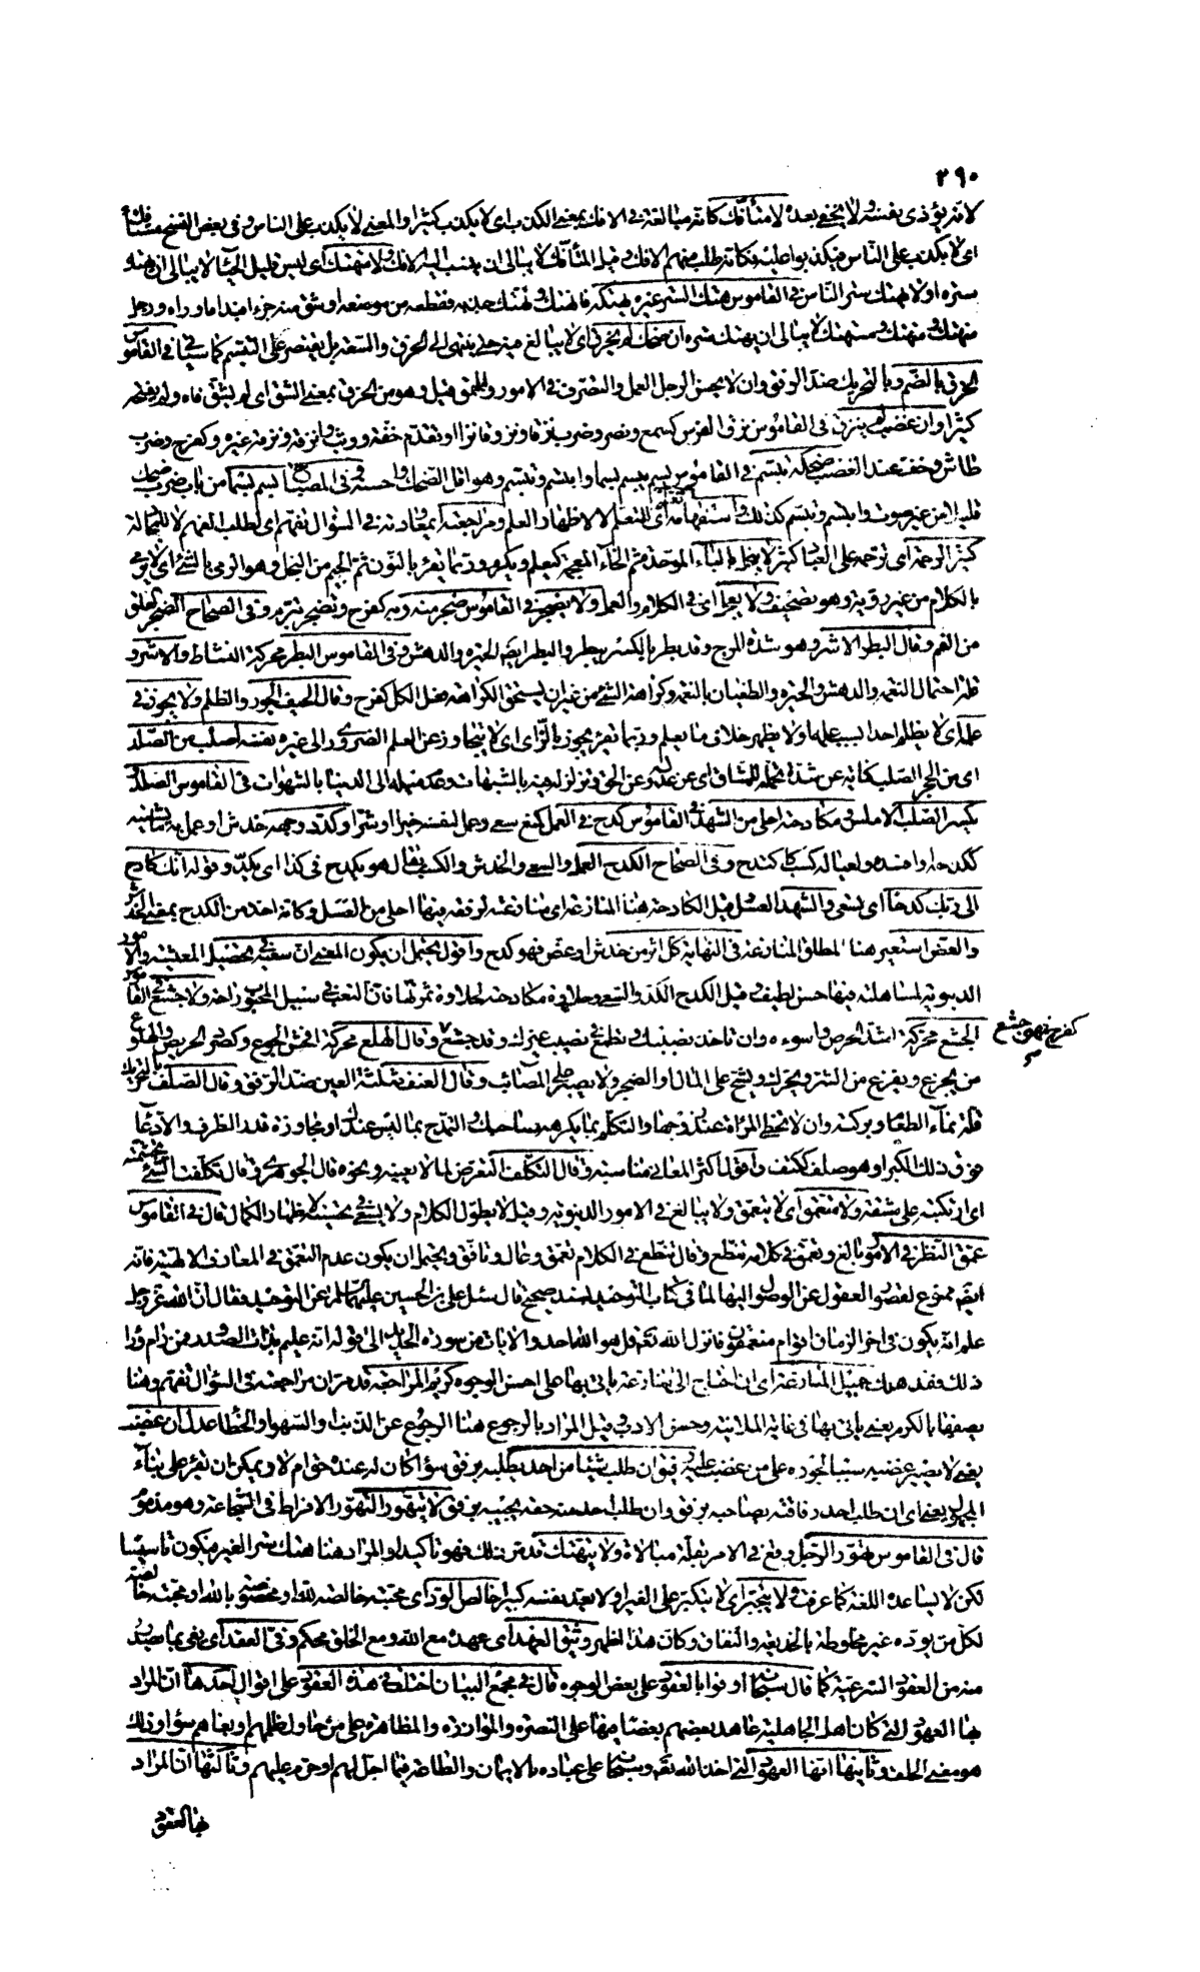 ٢٩٠
لانه يؤذى نفسه ولا يخفى بعده لا متأفك كانه مبالغة فى الافك بمعنى الكذب اى لا يكذب كثيرا والمعنى لا يكذب على الناس وفى بعض النسخ
اى لا يكذب على الناس فيكذبوا عليه فكانه طلب منهم الافك وقيل المتأفك لا يبالى ان ينسب اليه الافك ولا متهتك اى ليس قليل الحياء لا يبالى ان يهتك
ستره او لا يهتك ستر الناس فى القاموس هتك الستر وغيره يهتكه فانهتك وتهتك جذبه فقطعه من موضعه او شق منه جزءا فبدا ما وراءه ورجل
منهتك ومتهتك ومستهتك لا يبالى ان يهتك ستره ان ضحك لم يخرق اى لا يبالغ فيه حتى ينتهى الى الخرق والسفه بل يقتصر على التبسم كما سيأتى فى القاموس
الخرق بالضم وبالتحريك ضد الرفق وان لا يحسن الرجل العمل والتصرف فى الامور والحمق قيل وهو من الخرق بمعنى الشق اى لم يشق فاه ولم يفتحه
كثيرا وان غضب لم ينزق فى القاموس نزق الفرس كسمع ونصر وضرب نزقا ونزوقا نزا او تقدم خفة ووثب وانزقه ونزقه غيره وكفرح وضرب
طاش وخف عند الغضب ضحكه تبسم فى القاموس بسم يبسم بسما وابتسم وتبسم وهو اقل الضحك واحسنه وفى المصباح بسم بسما من باب ضرب ضحك
قليلا من غير صوت وابتسم وتبسم كذلك واستفهامه تعلم اى للتعلم لا لاظهار العلم ومراجعته اى معاودته فى السؤال تفهم اى لطلب الفهم لا للمجادلة
كثير الرحمة اى ترحمه على العباد كثير لا يبخل بالباء الموحدة ثم الخاء المعجمة كيعلم ويكرم وربما يقرء بالنون ثم الجيم من النجل وهو الرمى بالشئ اى لا يرمى
بالكلام من غير روية وهو تصحيف ولا يعجل اى فى الكلام والعمل ولا يضجر فى القاموس ضجر منه وبه كفرح وتضجر تبرم وفى الصحاح الضجر القلق
من الغم وقال البطر الاشر وهو شدة المرح وقد بطر بالكسر يبطر والبطر ايضا الحيرة والدهش وفى القاموس البطر محركة النشاط والاشر و
قلة احتمال النعمة والدهش والحيرة والطغيان بالنعمة وكراهة الشئ من غير ان يستحق الكراهة فعل الكل كفرح وقال الحيف الجور والظلم ولا يجور فى
علمه اى لا يظلم احدا بسبب علمه ولا يظهر خلاف ما يعلم وربما يقرء يجوز بالزاى اى لا يتجاوز عن العلم الضرورى الى غيره نفسه اصلب من الصلد
اى من الحجر الصلب كناية عن شدة تحمله للمشاق اى عن عدم عدوله عن الحق وتزلزله فيه بالشبهات وعدم ميله الى الدنيا بالشهوات فى القاموس الصلد
بكسر الصلب الاملس مكادحته احلى من الشهد فى القاموس كدح فى العمل كمنع سعى وعمل لنفسه خيرا او شرا وكد ووجهه خدش او عمل به ما يشينه
ككدحه او افسده ولعياله كسب كاكتدح وفى الصحاح الكدح العمل والسعى والخدش والكسب يقال هو يكدح فى كذا اى يكد وقوله انك كادح
الى ربك كدحا اى يسعى والشهد العسل قيل المكادحة هنا المنازعة اى منازعته لرفقه فيها احلى من العسل وكانه اخذ من الكدح بمعنى الخدش
والعض استعير هنا لمطلق المنازعة فى النهاية كل اثر من خدش او عض فهو كدح واقول يحتمل ان يكون المعنى ان سعيه فى تحصيل المعيشة والامور
الدنيوية لمساهلته فيها حسن لطيف وقيل الكدح الكد والسعى وحلاوة مكادحته لحلاوة ثمرتها فان التعب فى سبيل المحبوب راحة ولا جشع فى القاموس
الجشع محركة اشد الحرص واسوءه وان تاخذ نصيبك وتطمع فى نصيب غيرك وقد جشع وقال الهلع محركة افحش الجزع وكصرد الحريص والهلوع
كفرح فهو جشع
من يجزع ويفزع من الشر ويحرص ويشح على المال او الضجور لا يصبر على المصائب وقال العنف مثلثة العين ضد الرفق وقال الصلف بالتحريك
قلة نماء الطعام وبركته وان لا تحظى المرأة عند زوجها والتكلم بما يكرهه صاحبك والتمدح بما ليس عندك او مجاوزة قدر الظرف والادعاء
فوق ذلك تكبرا وهو صلف ككتف واقول اكثر المعانى مناسبة وقال التكلف التعرض لما لا يعنيه ونحوه قال الجوهرى وقال تكلفت الشئ تجشمته
اى ارتكبته على مشقة ولا متعمق اى لا يتعمق ولا يبالغ فى الامور الدنيوية وقيل لا يطول الكلام ولا يسعى فى تحسينه لاظهار الكمال قال فى القاموس
عمق النظر فى الامور بالغ وتعمق فى كلامه تنطع وقال تنطع فى الكلام تعمق وغالى وتأنق ويحتمل ان يكون عدم التعمق فى المعارف الالهية فانه
ايضا ممنوع لقصور العقول عن الوصول اليها لما فى كتاب التوحيد بسند صحيح قال سئل على بن الحسين عليهما السلام عن التوحيد فقال ان الله عز وجل
علم انه يكون فى اخر الزمان اقوام متعمقون فانزل الله تعالى قل هو الله احد والايات من سورة الحديد الى قوله انه عليم بذات الصدور فمن رام وراء
ذلك فقد هلك جميل المنازعة اى ان احتاج الى منازعة ياتى بها على احسن الوجوه كريم المراجعة قد مر ان مراجعته فى السؤال تفهم وهنا
يصفها بالكرم يعنى ياتى بها فى غاية الملاينة وحسن الادب وقيل المراد بالرجوع هنا الرجوع عن الذنب او السهو او الخطا عدل ان غضب
يعنى لا يصير غضبه سببا لجوره على من غضب عليه رفيق ان طلب شيئا من احد يطلبه برفق سواء كان له عنده حق ام لا ويمكن ان يقرء على بناء
المجهول يعنى اى ان طلب احد رفاقته يصاحبه برفق وان طلب احد منه حقه يجيبه برفق لا يتهور التهور الافراط فى الشجاعة وهو مذموم
قال فى القاموس تهور الرجل وقع فى الامر بقلة مبالاة ولا يتهتك قد مر ذلك فهو تاكيد او المراد هنا هتك ستر الغير فيكون تاسيسا
لكن لا يساعده اللغة كما عرفت ولا يتجبر اى لا يتكبر على الغير او لا يعد نفسه كبيرا خالص الود اى محبته خالصة لله او مخصوصة بالله او محبته خالصة
لكل من يوده غير مخلوطة بالخديعة والنفاق وكان هذا اظهر وثيق العهد اى عهده مع الله ومع الخلق محكم وفى العقد اى يفى بما يصدر
منه من العقود الشرعية كما قال سبحانه اوفوا بالعقود على بعض الوجوه قال فى مجمع البيان اختلف فى هذه العقود على اقوال احدها ان المراد
بها العهود التى كان اهل الجاهلية عاهد بعضهم بعضا فيها على النصرة والموازرة والمظاهرة على من حاول ظلمهم او بغاهم سوءا وذلك
هو معنى الحلف وثانيها انها العهود التى اخذ الله تعالى سبحانه على عباده بالايمان والطاعة فيما احل لهم او حرم عليهم وثالثها ان المراد
بها العقود